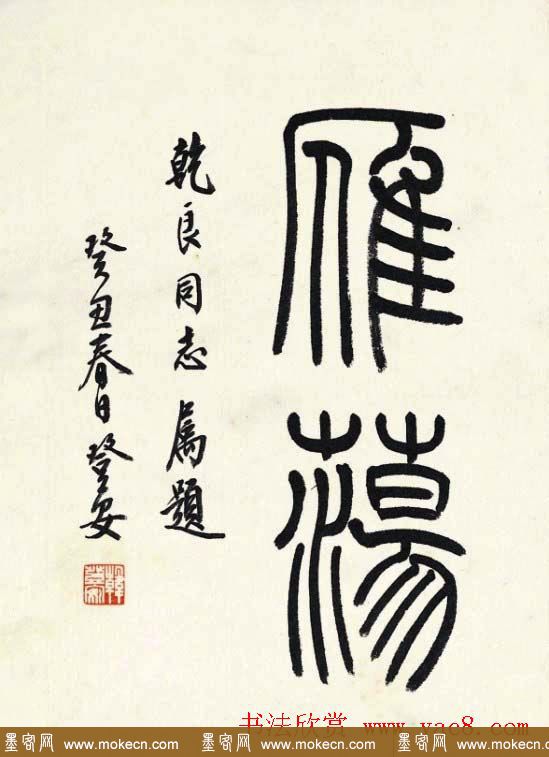 雁蕩
乾良同志属題
癸丑春日登安
書法欣赏 www.yac8.com
墨客网 www.mokecn.com 墨客网 www.mokecn.com 墨客网 www.mokecn.com